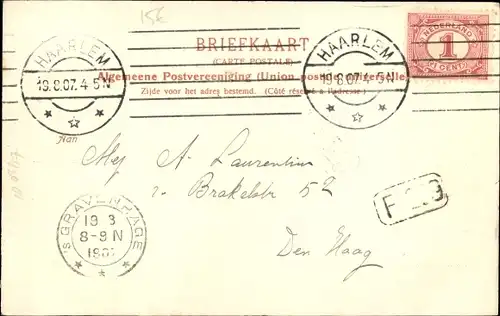 15k
NEDERLAND
1
CENT
HAARLEM
19.8.07.4-5N
BRIEFKAART
(CARTE POSTALE)
HAARLEM
19.8.07.4-5N
Algemeene Postvereeniging (Union postale universelle)
Zijde voor het adres bestemd. (Côté réservé à l'adresse.)
Aan
Mej A. Laurentius
v. Brakelstr 52
Den Haag
'S GRAVENHAGE
19 3
8-9N
1907